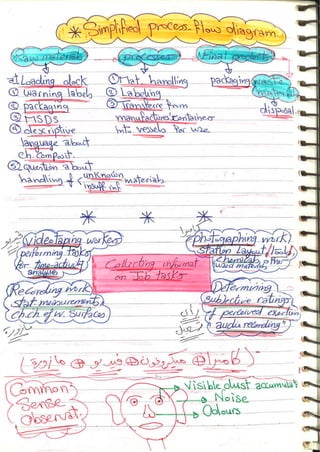 * Simplified process flow diagram
Raw materials
at Loading dock
① warning labels
② packaging
③ MSDS
④ descriptive
language about
ch. composit.
⑤ question about
handling of unknown materials
insuff. inf
processes
① Mat. handling
② Labeling
③ Transferre from
manufactures container
int. vessels for use.
Final products
packaging waste
material
disposal
* * *
Videotaping workers
performing tasks
for time-activity
analysis
photographing work
station Layout / tools /
chemicals
Collecting informat
on Job tasks
Recording work
stat measurements
ch.ch of w. surfaces
Determining
subjective ratings
of perceived exertion
audio recording
(كاميرا ⊕ ميكروفون ⊕ فيديو ⊕ مازورة)
Common
Sense
Observat.
Visible dust accumulat
Noise
Odours